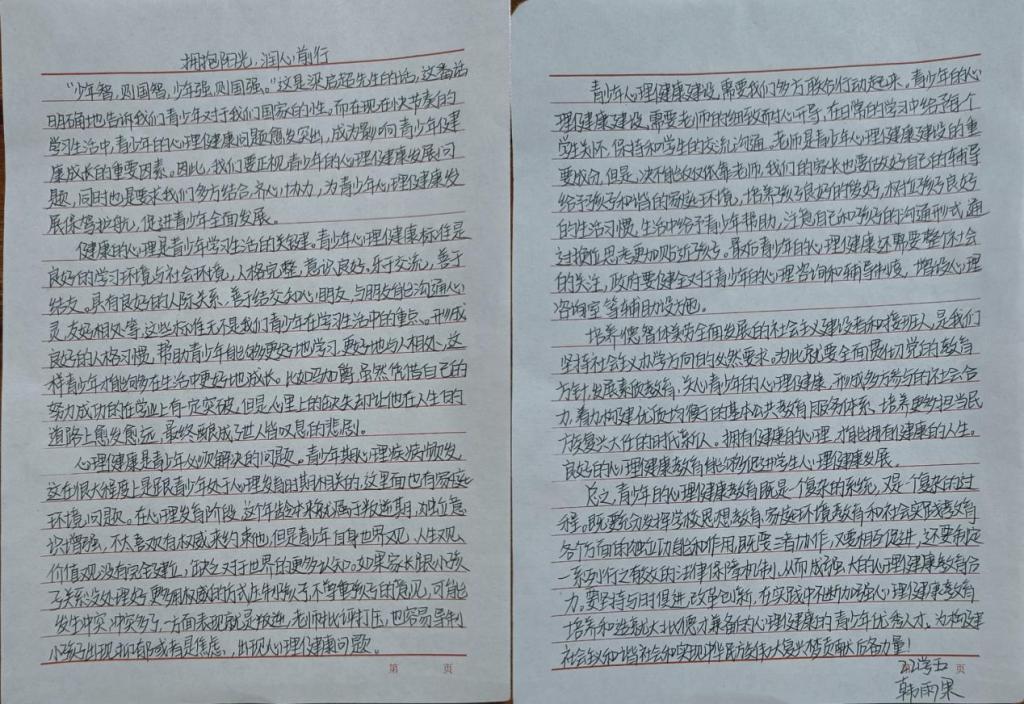 拥抱阳光,润心前行
“少年智,则国智,少年强,则国强。”这是梁启超先生的话,这番话
明确地告诉我们青少年对于我们国家的性。而在现在快节奏的
学习生活中,青少年的心理健康问题愈发突出,成为影响青少年健
康成长的重要因素。因此,我们要正视青少年的心理健康发展问
题,同时也是要求我们多方结合,齐心协力,为青少年心理健康发
展保驾护航,促进青少年全面发展。
健康的心理是青少年学习生活的关键。青少年心理健康标准是
良好的学习环境与社会环境,人格完整,意识良好,乐于交流,善于
结友。具有良好的人际关系,善于结交知心朋友,与朋友能沟通心
灵,友好相处等,这些标准无不是我们青少年在学习生活中的重点。形成
良好的人格习惯,帮助青少年能够更好地学习,更好地与人相处,这
样青少年才能够在生活中更好地成长。比如马加爵,虽然凭借自己的
努力成功的在学业上有一定突破,但是心理上的缺失却让他在人生的
道路上愈发愈远,最终酿成了世人皆叹息的悲剧。
心理健康是青少年必须解决的问题。青少年期心理疾病频发,
这在很大程度上是跟青少年处于心理发育时期相关的,这里面也有家庭
环境问题。在心理发育阶段,这个年龄本来就属于叛逆期,独立意
识增强,不太喜欢有权威来约束他,但是青少年自身世界观、人生观、
价值观没有完全建立,缺乏对于世界的更多公知。如果家长跟小孩
子关系没处理好,更多用权威的方式压制孩子,不尊重孩子的意见,可能
发生冲突,冲突多了,一方面表现就是叛逆,老师批评打压,也容易导致
小孩子出现抑郁或者是焦虑,出现心理健康问题。
第 页
青少年心理健康建设,需要我们多方联合行动起来。青少年的心
理健康建设,需要老师的细致耐心开导,在日常的学习中给予每个
学生关怀,保持和学生的交流沟通。老师是青少年心理健康建设的重
要成分,但是,决不能仅仅依靠老师,我们的家长也要做好自己的辅导
给予孩子和谐的家庭环境,培养孩子良好的爱好,树立孩子良好
的生活习惯,生活中给予青少年帮助,注意自己和孩子的沟通形式,通
过换位思考更加贴近孩子。最后青少年的心理健康还需要整个社会
的关注,政府要健全对于青少年的心理咨询和辅导制度,增设心理
咨询室等辅助设施。
培养德智体美劳全面发展的社会主义建设者和接班人,是我们
坚持社会主义办学方向的必然要求。为此就要全面贯彻党的教育
方针,发展素质教育,关心青少年的心理健康,形成多方参与的社会合
力,着力构建优质均衡的基本公共教育服务体系,培养更多担当民
族复兴大任的时代新人。拥有健康的心理,才能拥有健康的人生。
良好的心理健康教育能够促进学生心理健康发展。
总之,青少年的心理健康教育既是个复杂的系统,又是个复杂的过
程。既要充分发挥学校思想教育、家庭环境教育和社会实践教育
各个方面的独立功能和作用,既要三者协作,又要相互促进,还要制定
一系列行之有效的法律保障机制,从而成强大的心理健康教育合
力。要坚持与时俱进,改革创新,在实践中不断加强心理健康教育
培养和造就大批德才兼备的心理健康的青少年优秀人才,为构建
社会主义和谐社会和实现中华民族伟大复兴梦贡献后备力量!
页
韩雨果